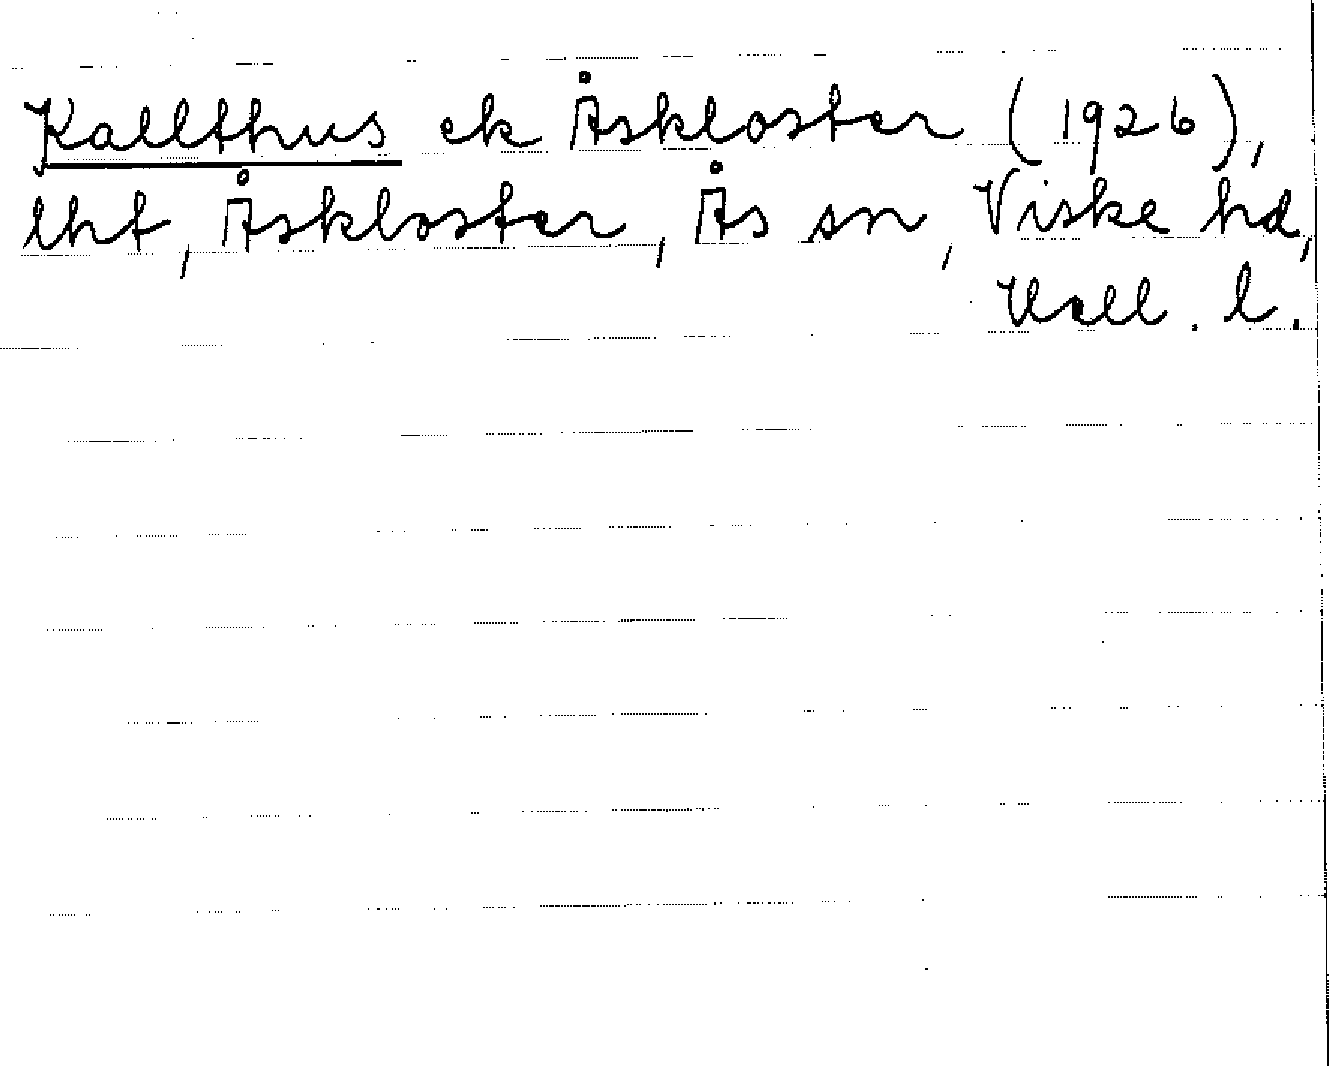 Kallthus ek Åskloster (1926),
lht, Åskloster, Ås sn, Viske hd,
Hall. l.